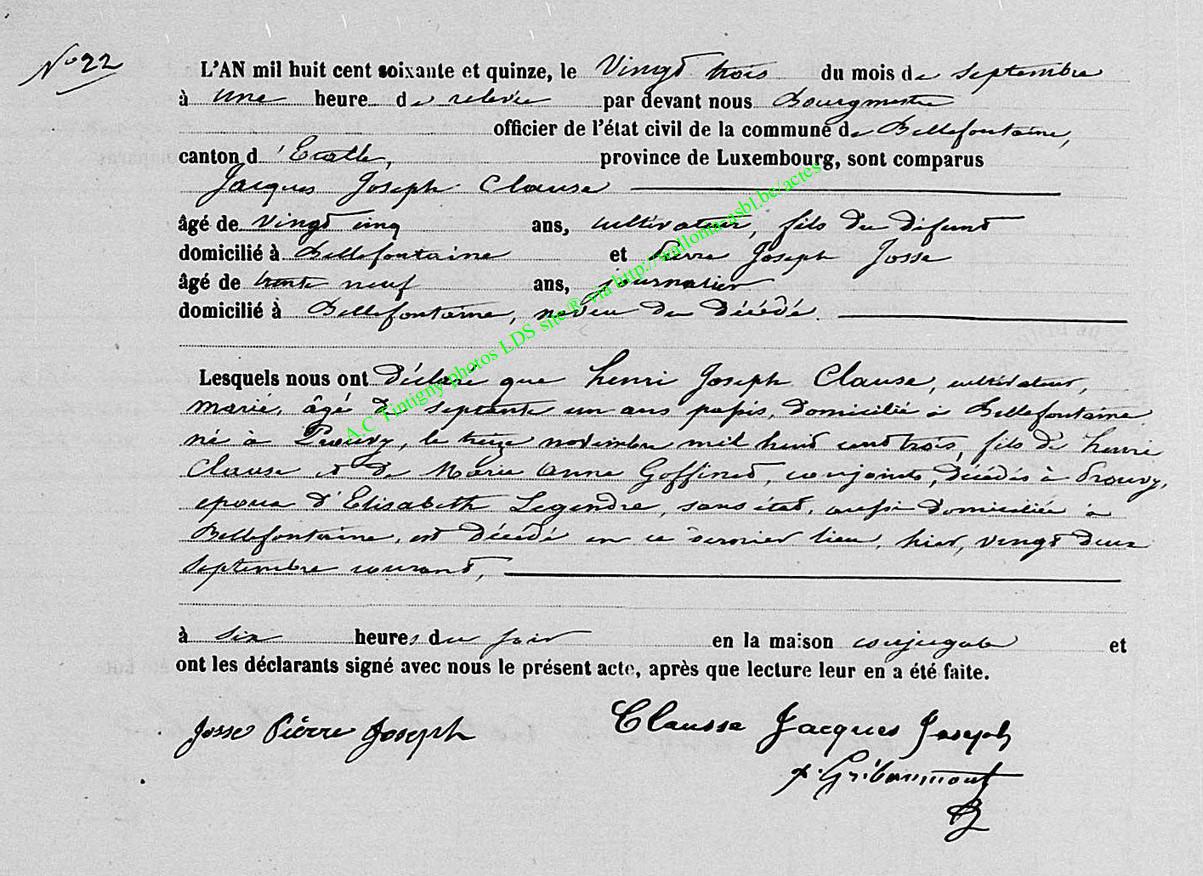 N° 22
L'AN mil huit cent soixante et quinze, le Vingt trois du mois de Septembre
à une heure de relevée par devant nous Bourgmestre
officier de l'état civil de la commune de Bellefontaine,
canton d'Etalle, province de Luxembourg, sont comparus
Jacques Joseph Clause
âgé de vingt cinq ans, cultivateur, fils du défunt
domicilié à Bellefontaine et Pierre Joseph Josse
âgé de trente neuf ans, journalier
domicilié à Bellefontaine, neveu du décédé.
Lesquels nous ont déclaré que henri Joseph Clause, cultivateur,
marié, âgé de septante un ans passés, domicilié à Bellefontaine
né à Prouvy, le treize novembre mil huit cent trois, fils de henri
Clause et de Marie Anne Goffinet, conjoints, décédés à Prouvy,
epoux d'Elisabeth Legendre, sans état, aussi domiciliée à
Bellefontaine, est décédé en ce dernier lieu, hier, vingt deux
Septembre courant,
à six heures du soir en la maison conjugale et
ont les déclarants signé avec nous le présent acte, après que lecture leur en a été faite.
Josse Pièrre Joseph Clausse Jacques Joseph
Gribaumont
A.C Tintigny photos LDS site® via http://wallonia-asbl.be/actes